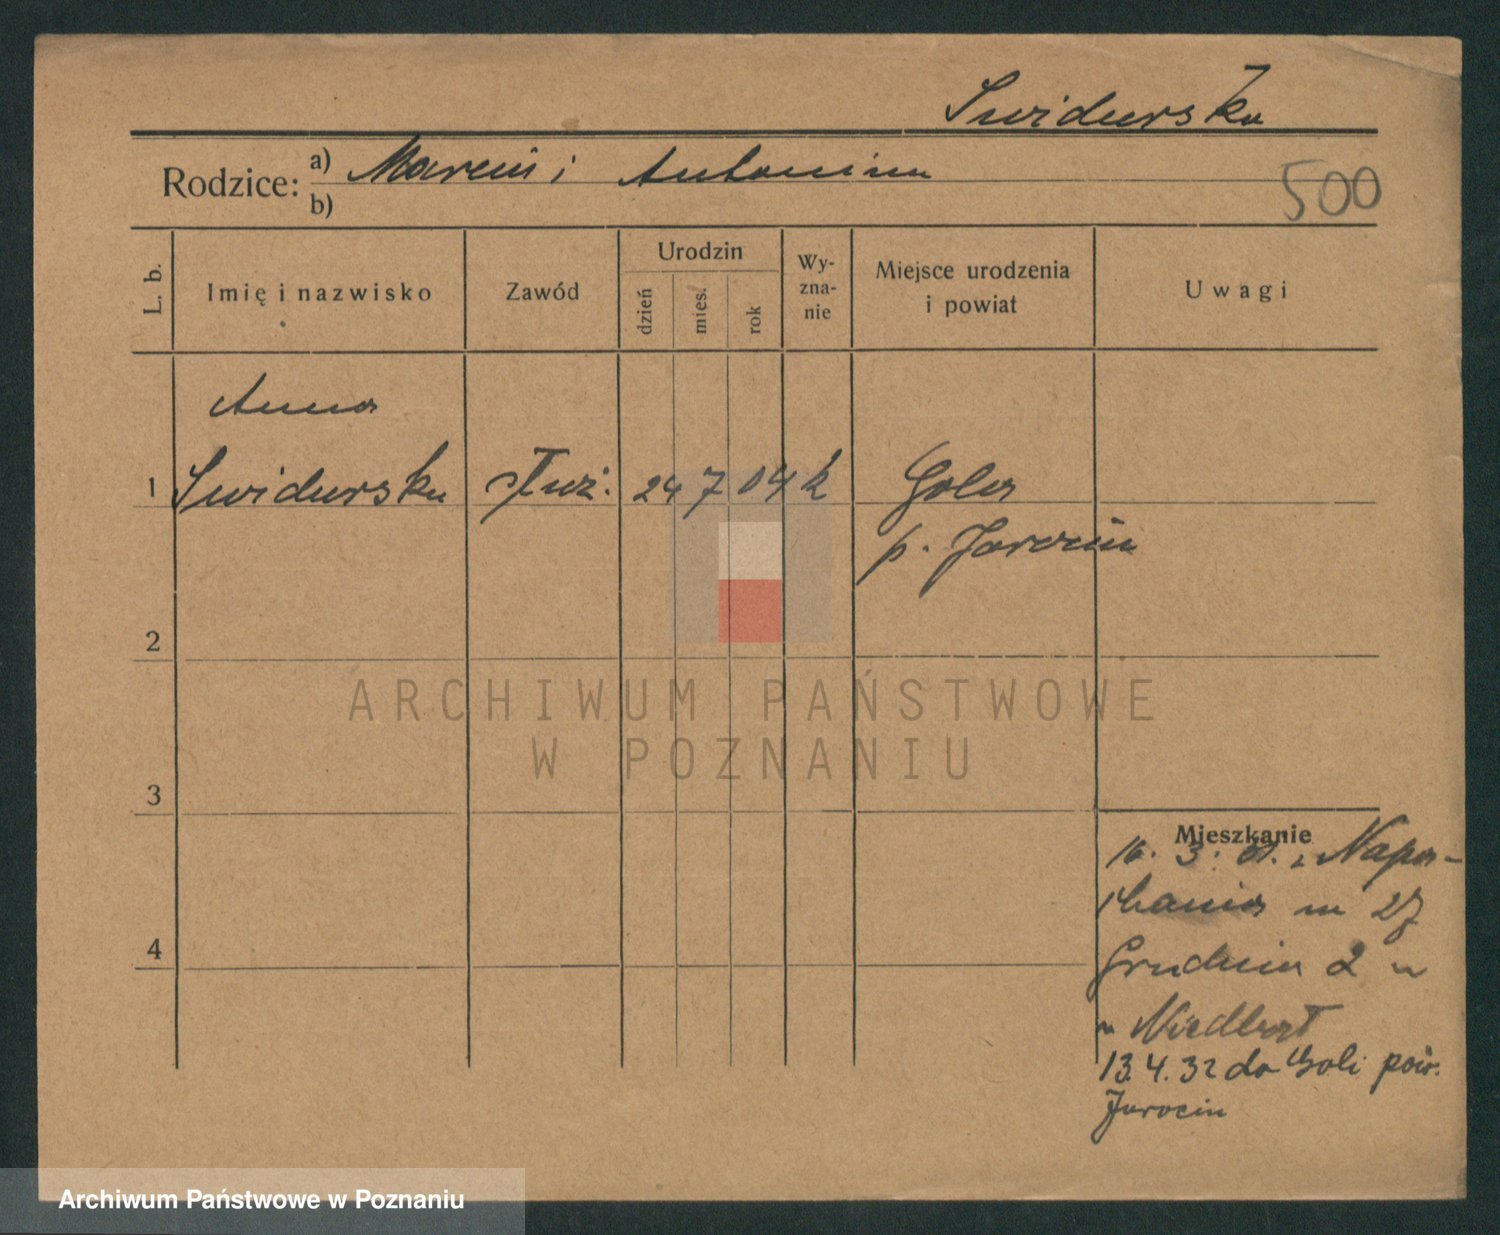 Swiderska
Rodzice: a) Marcin i Antonina
b)
500
L. b.
Imię i nazwisko
Zawód
Urodzin
dzień
mies.
rok
Wy-
zna-
nie
Miejsce urodzenia
i powiat
Uwagi
Anna
1 Swiderska służ. 24 7 04 k Gola
p. Jarocin
2
3
4
ARCHIWUM PAŃSTWOWE
W POZNANIU
Mieszkanie
16. 3. z
na 27
Grudnia 2
u
13.4.32 do Goli pow.
Jarocin
Archiwum Państwowe w Poznaniu